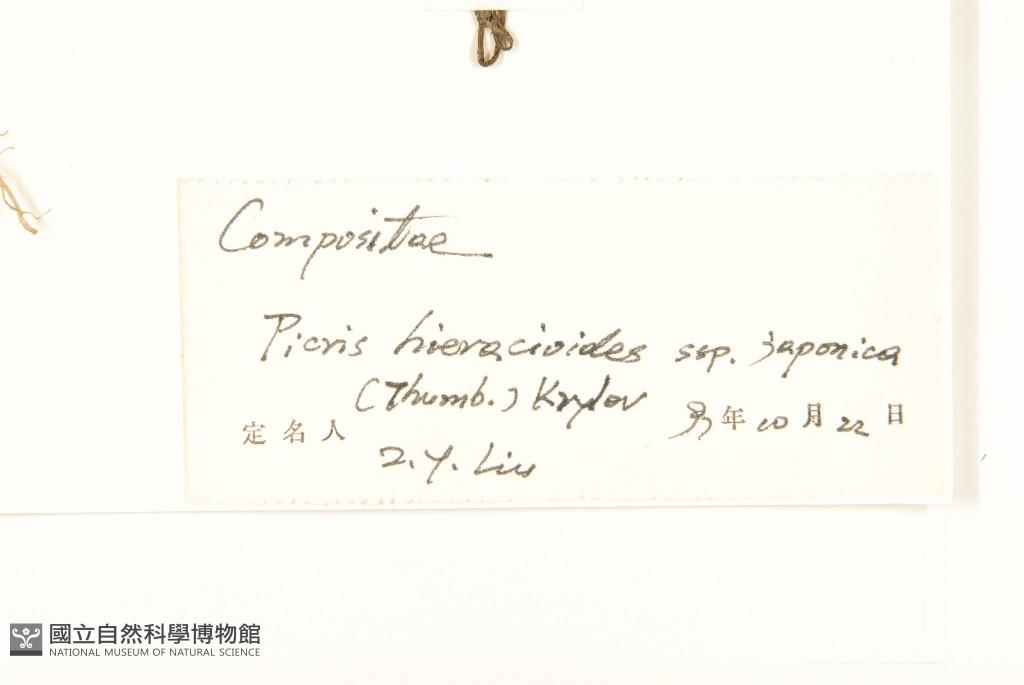 Compositae
Picris hieracioides ssp. japonica
(Thumb.) Krylov
年 10 月 22 日
定名人
Z. Y. Liu
國立自然科學博物館
NATIONAL MUSEUM OF NATURAL SCIENCE